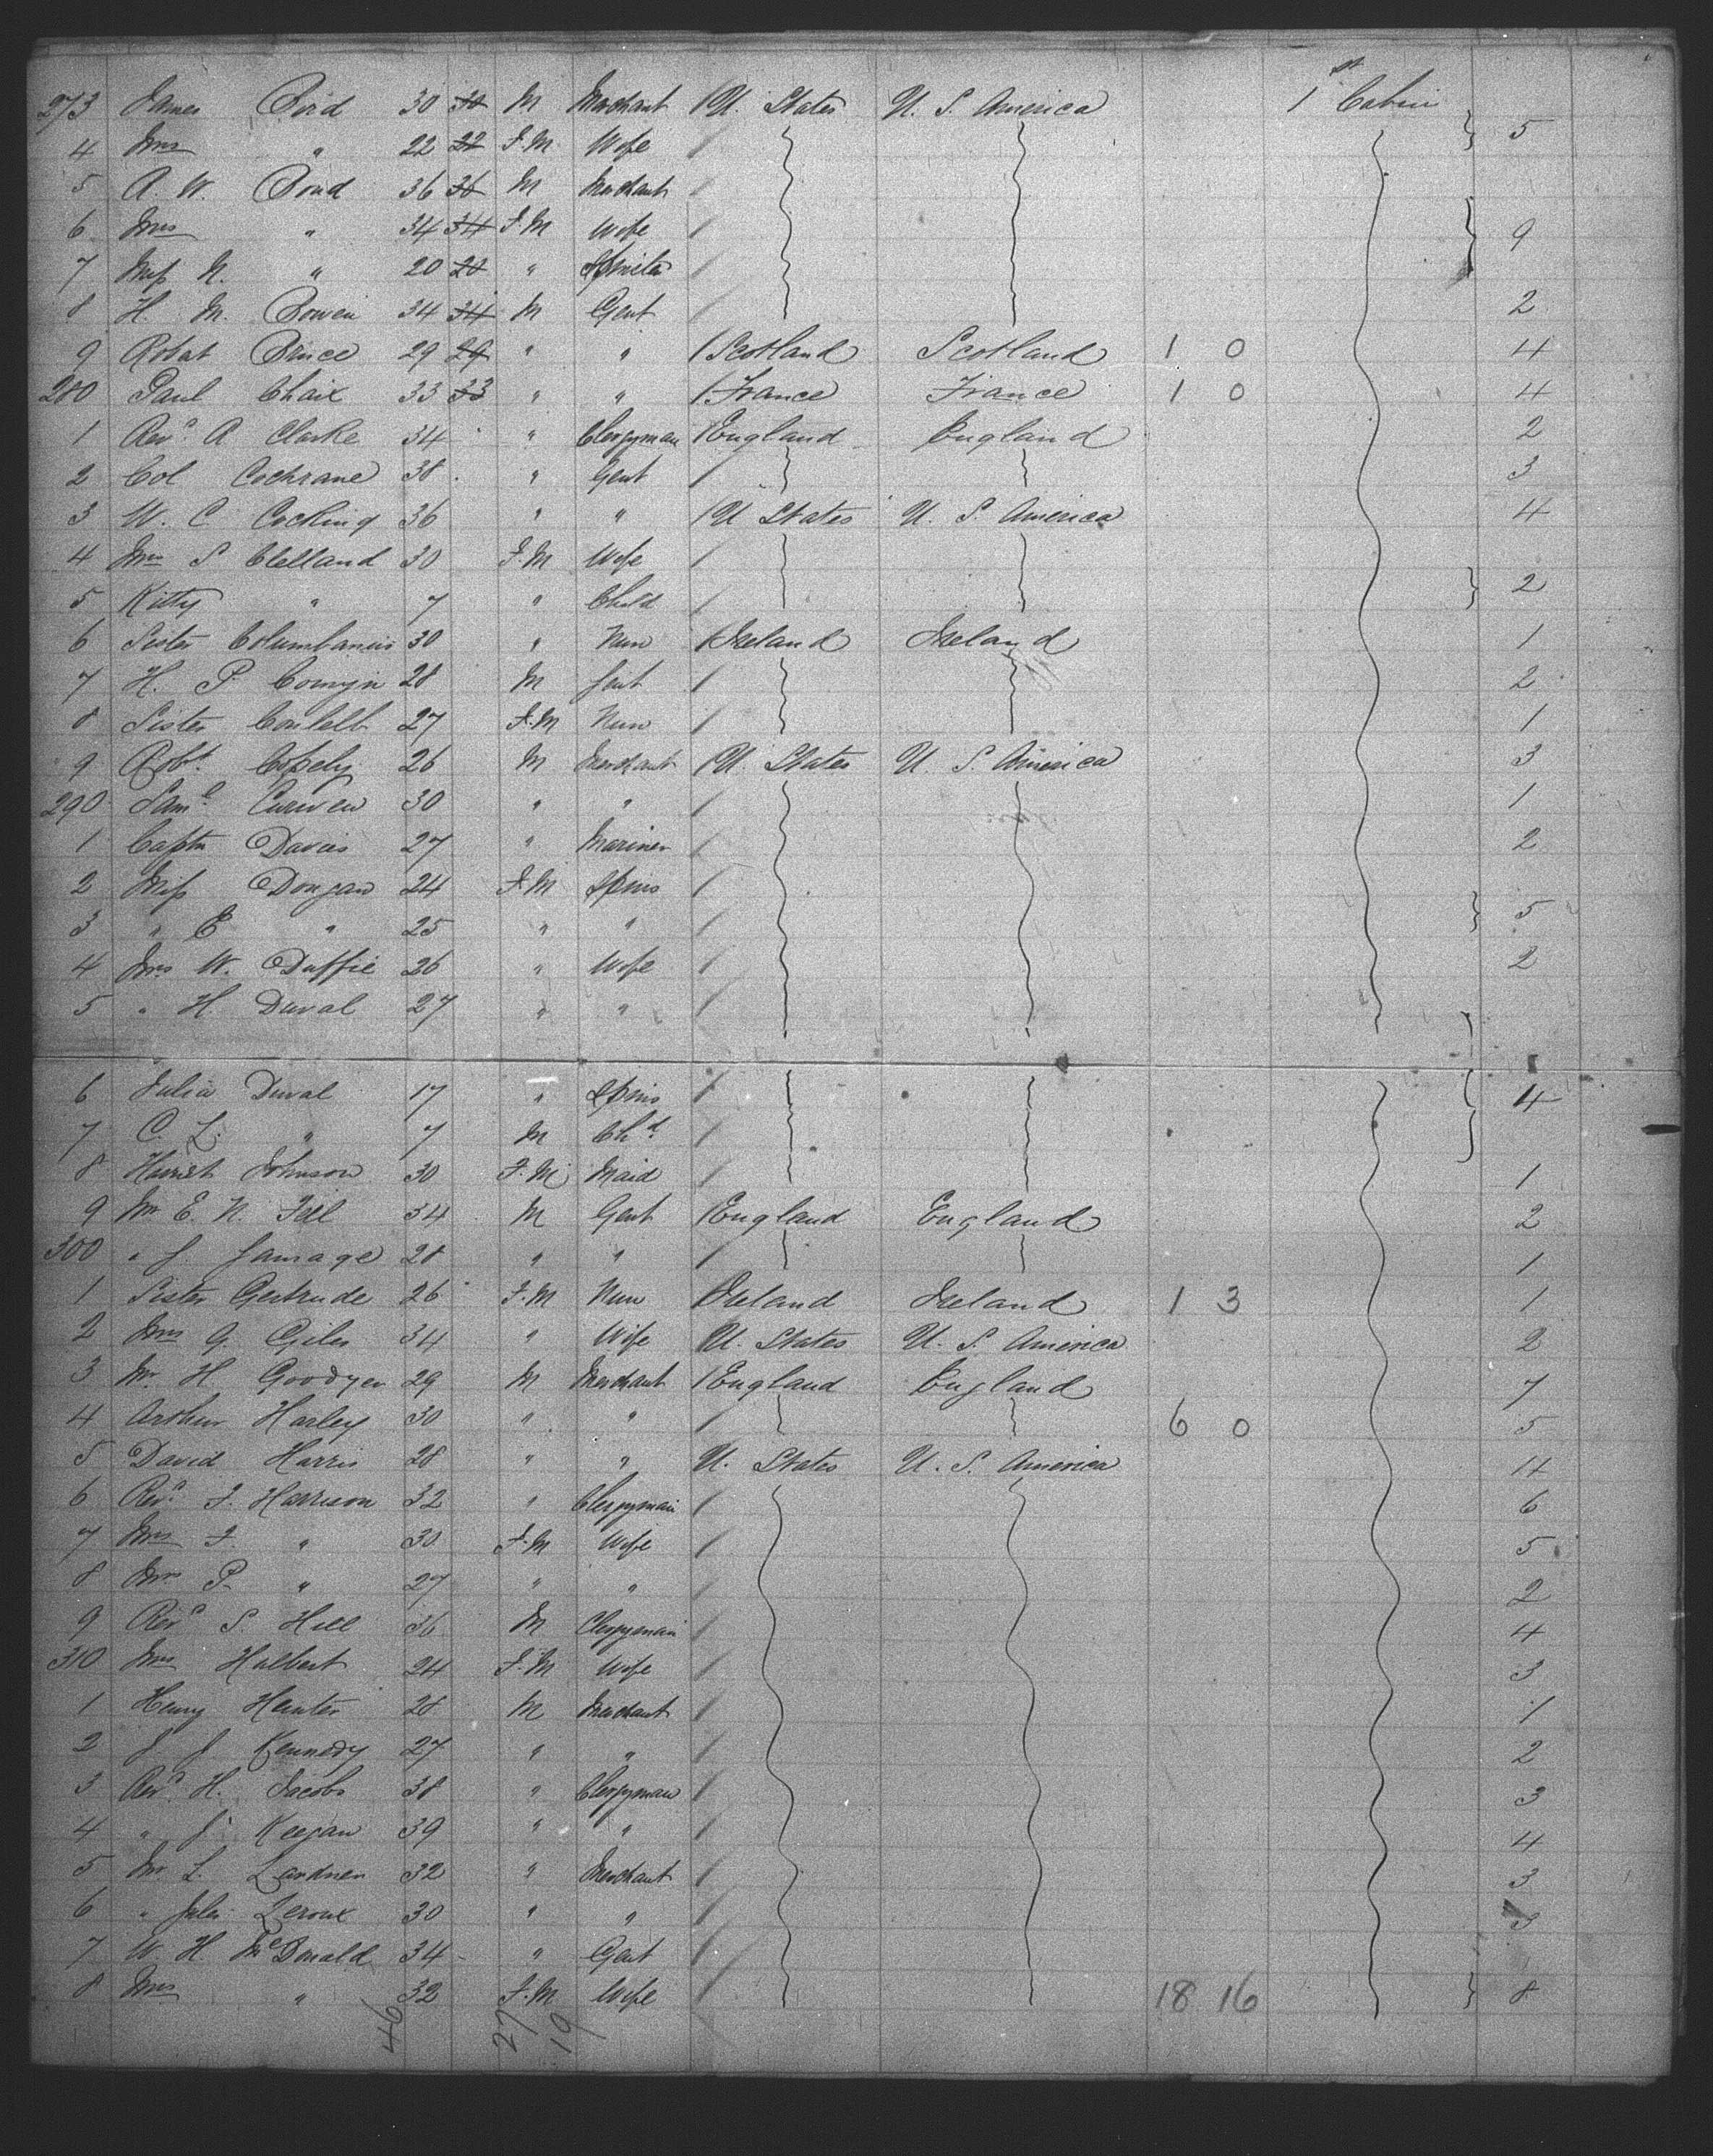 273 James Bird 30 30 M Merchant / U. States U. S. America 1st Cabin
4 Mrs " 22 22 F.M Wife / } 5
5 A. W. Bond 36 36 M Merchant /
6 Mrs " 34 34 F.M Wife / } 9
7 Miss N. " 20 20 " Spinster /
8 H. M. Bowen 34 34 M Gent / 2
9 Robert Bruce 29 29 " " / Scotland Scotland 1 0 4
280 Paul Chaix 33 33 " " / France France 1 0 4
1 Revd A Clarke 34 " Clergyman / England England 2
2 Col Cochrane 38 " Gent / 3
3 W. C. Cocking 36 " " / U States U. S. America 4
4 Mrs S Clelland 30 F.M Wife /
5 Kitty " 7 " Child / } 2
6 Sister Columbanus 30 " Nun / Ireland Ireland 1
7 H. P. Comyn 28 M Gent / 2
8 Sister 27 F.M Nun / 1
9 Robt. 26 M Merchant / U. States U. S. America 3
290 Saml Curwen 30 " " / 1
1 Captn Davies 27 " Mariner / 2
2 Miss Dongan 24 F.M Spins /
3 " E " 25 " " / } 5
4 Mrs W. Duffie 26 " Wife / 2
5 " H. Duval 27 " " /
6 Julia Duval 17 " Spins / } 4
7 C. L. " 7 M Chd. /
8 Harriet Johnson 30 F.M Maid / 1
9 Mr E. N. 34 M Gent / England England 2
300 " J. 28 " " / 1
1 Sister Gertrude 26 F.M Nun / Ireland Ireland 1 3 1
2 Mrs G. Giles 34 " Wife / U. States U. S. America 2
3 Mr. H Goodyer 29 M Merchant / England England 7
4 Arthur Harley 30 " " / 6 0 5
5 David Harris 28 " " U. States U. S. America 4
6 Revd. F. Harrison 32 " Clergyman / 6
7 Mrs F. " 30 F.M Wife / 5
8 Mrs P. " 27 " " / 2
9 Revd S. Hill 36 M Clergyman / 4
310 Mrs Hulbert 24 F.M Wife / 3
1 Henry Hunter 28 M Merchant / 1
2 J. J. Kennedy 27 " " / 2
3 Revd. H. Jacobs 38 " Clergyman / 3
4 " J. Keegan 39 " " / 4
5 Mr. L. Lardner 32 " Merchant / 3
6 " Jules Leroux 30 " " / 3
7 W. H. McDonald 34 " Gent /
8 Mrs " 32 F.M Wife / 18 16 } 8
46 27 19